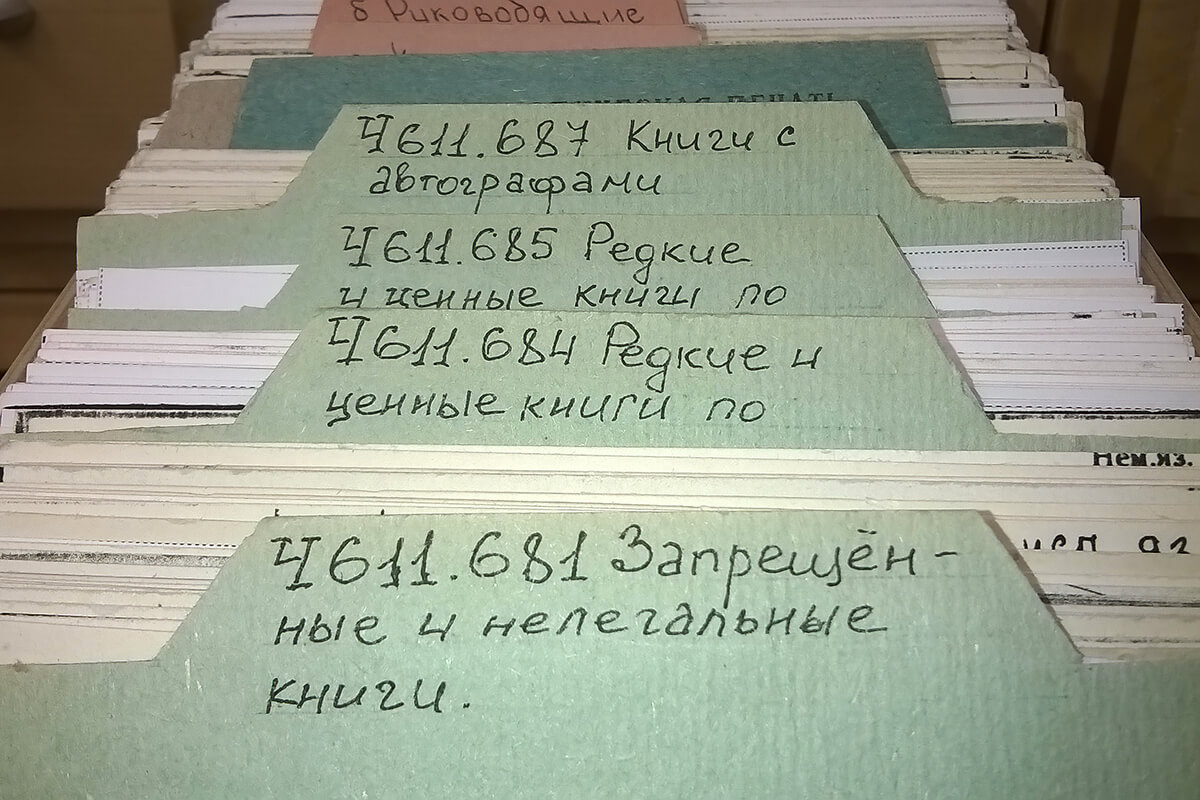 б Руководящие
ПЕЧАТЬ
Ч611.687 Книги с
автографами
Ч611.685 Редкие
и ценные книги по
Ч611.684 Редкие и
ценные книги по
Нем.яз.
Ч611.681 Запрещён-
ные и нелегальные
книги.